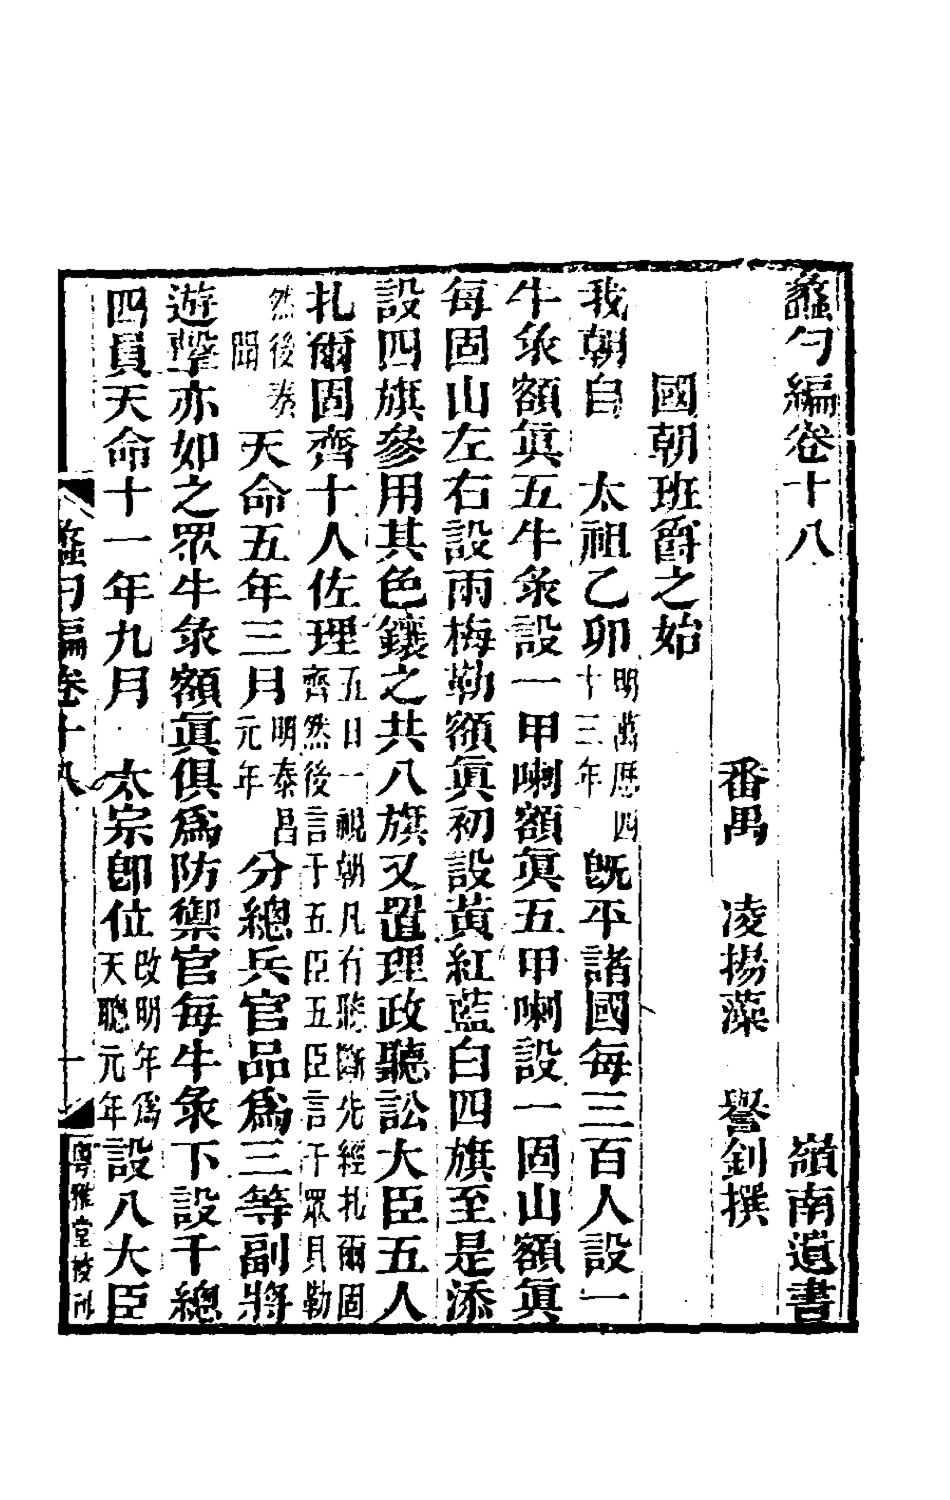 蠡勺編卷十八　　　　　　　　　　嶺南遺書
番禺　凌揚藻　譽釗撰
國朝班爵之始
我朝自　太祖乙卯明萬厯四十三年旣平諸國每三百人設一
牛彔額眞五牛彔設一甲喇額眞五甲喇設一固山額眞
每固山左右設兩梅勒額眞初設黃紅藍白四旗至是添
設四旗參用其色鑲之共八旗又置理政聽訟大臣五人
扎爾固齊十人佐理五日一視朝凡有聽斷先經扎爾固齊然後言于五臣五臣言于眾貝勒
然後奏聞　天命五年三月明泰昌元年　分總兵官品爲三等副將
遊擊亦如之眾牛彔額眞俱爲防禦官每牛彔下設千總
四員天命十一年九月　太宗卽位改明年爲天聰元年設八大臣
蠡勺編卷十八　　一　粤雅堂校刊